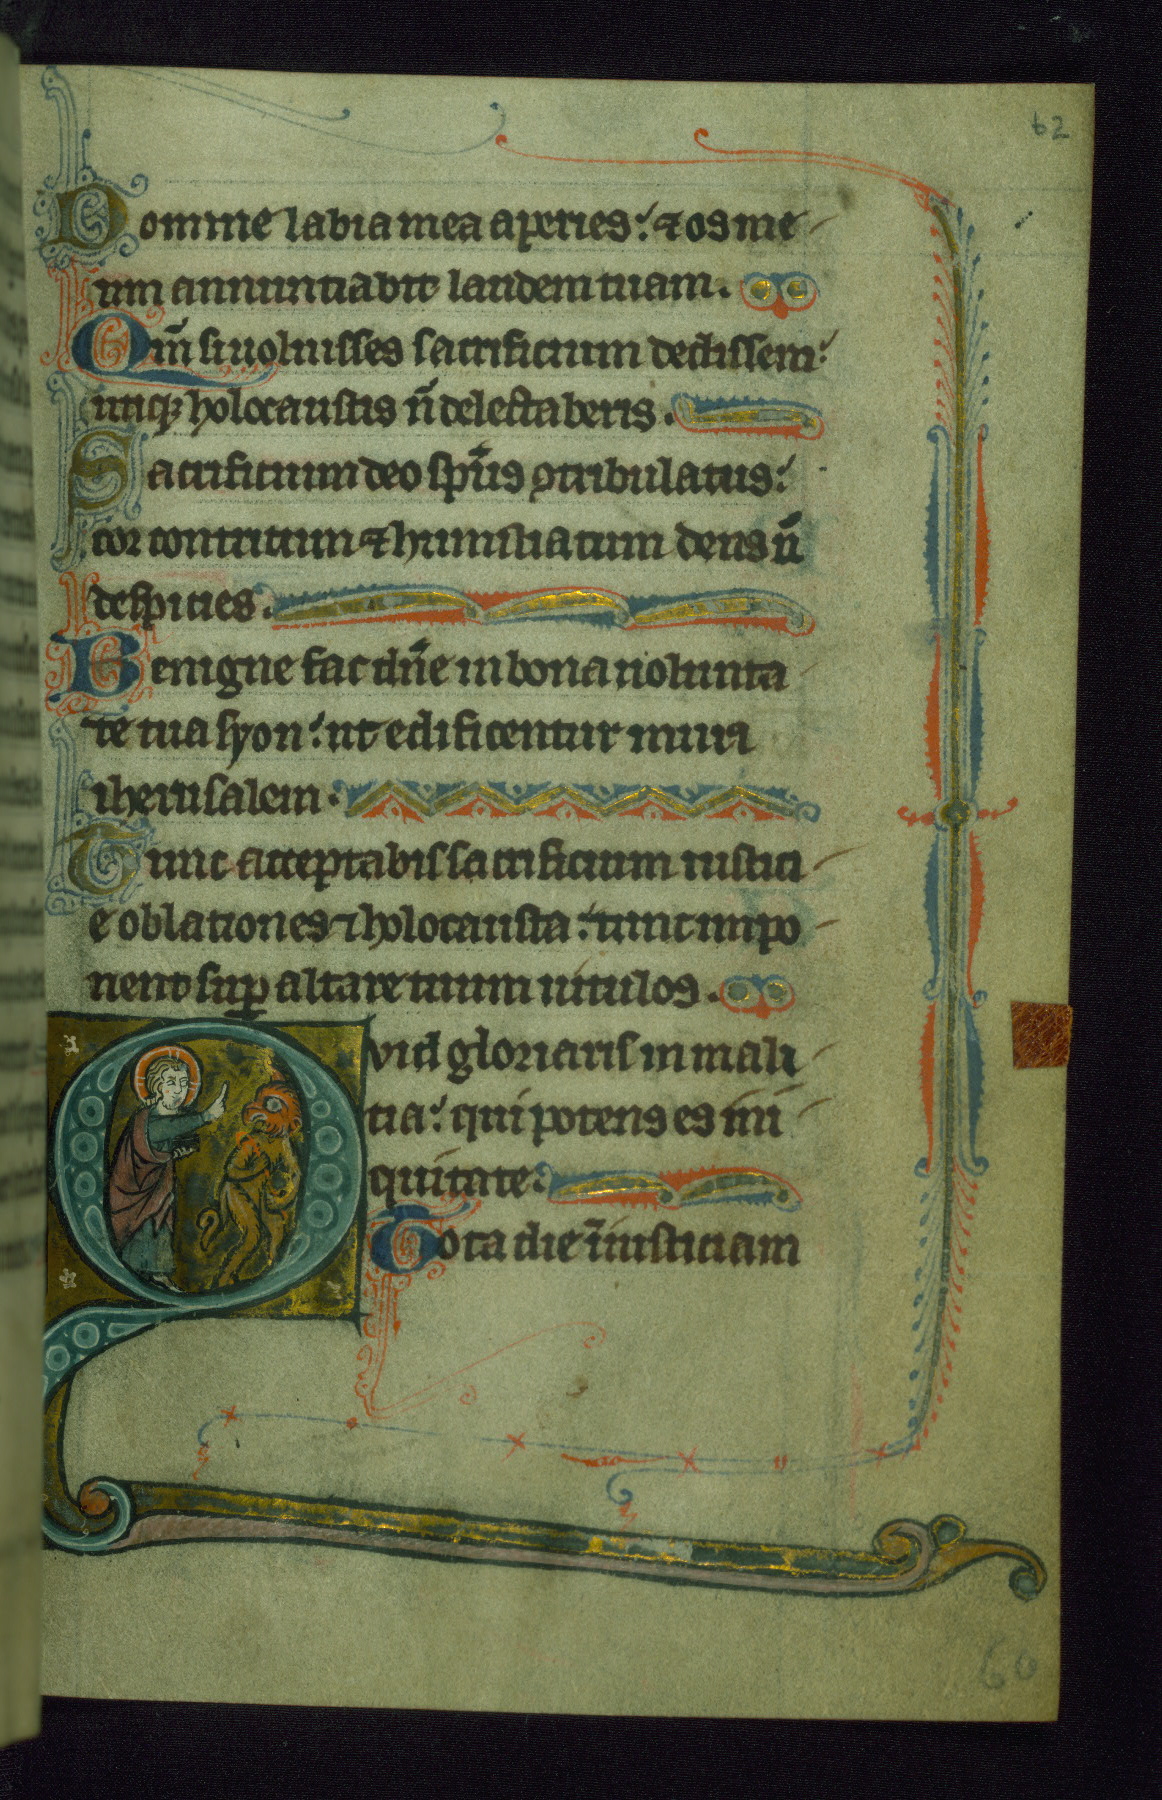 62
Domine labia mea aperies: ⁊ os me
um annuntiabit laudem tuam.
Qm̄ si uoluisses sacrificium dedissem:
utiqꝫ holocaustis n̄ delectaberis.
Sacrificium deo sp̄us ꝯtribulatus:
cor contritum ⁊ humiliatum deus n̄
despicies.
Benigne fac dn̄e in bona uolunta
te tua syon: ut edificentur muri
iherusalem.
Tunc acceptabis sacrificium iustici
e oblationes ⁊ holocausta: tunc impo
nent suꝑ altare tuum uitulos.
Quid gloriaris in mali
tia: qui potens es in i
quitate:
Tota die īiusticiam
60